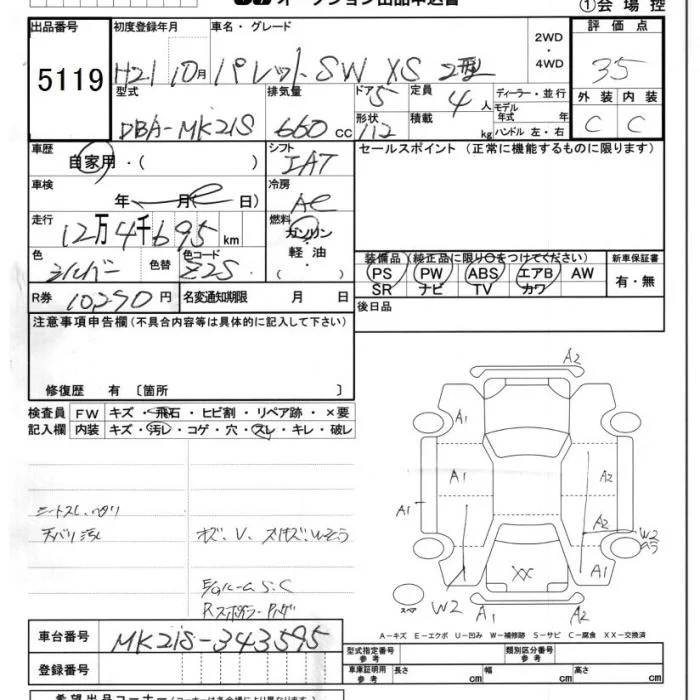 オークション出品申込書
①会場控
出品番号 初度登録年月 車名・グレード 2WD ・4WD 評価点
5119 H21 10月 パレットSW XS 2型 35
型式 排気量 ドア 5 定員 4 人 ディーラー・並行 外装 内装
DBA-MK21S 660 cc 形状 112 積載 kg モデル年式 年 ハンドル 左・右 C C
車歴 自家用・( ) シフト IAT セールスポイント (正常に機能するものに限ります)
車検 年 月 日) 冷房 AC
走行 12万4千695 km 燃料 ガソリン・軽油・( )
色 シルバー 色替 色コード Z2S
装備品 (純正品に限り○をつけてください) 新車保証書
PS PW ABS エアB AW 有・無
SR ナビ TV カワ
R券 10290 円 名変通知期限 月 日 後日品
注意事項申告欄 (不具合内容等は具体的に記入して下さい)
修復歴 有 〔箇所 〕
検査員 FW キズ・飛石・ヒビ割・リペア跡・×要
記入欄 内装 キズ・汚レ・コゲ・穴・スレ・キレ・破レ
シートスレ、ヘタリ
天バリ汚レ
キズ、V、スリキズ
S.C
A2
A1
A1 A2
A1
A2
W2
XX
スペア W2 A1 A2
A-キズ E-エクボ U-凹み W-補修跡 S-サビ C-腐食 XX-交換済
車台番号 MK21S-343595
登録番号
型式指定番号 参考 類別区分番号 参考
車庫証明用 参考 長さ cm 幅 cm 高さ cm
希望出品コーナー